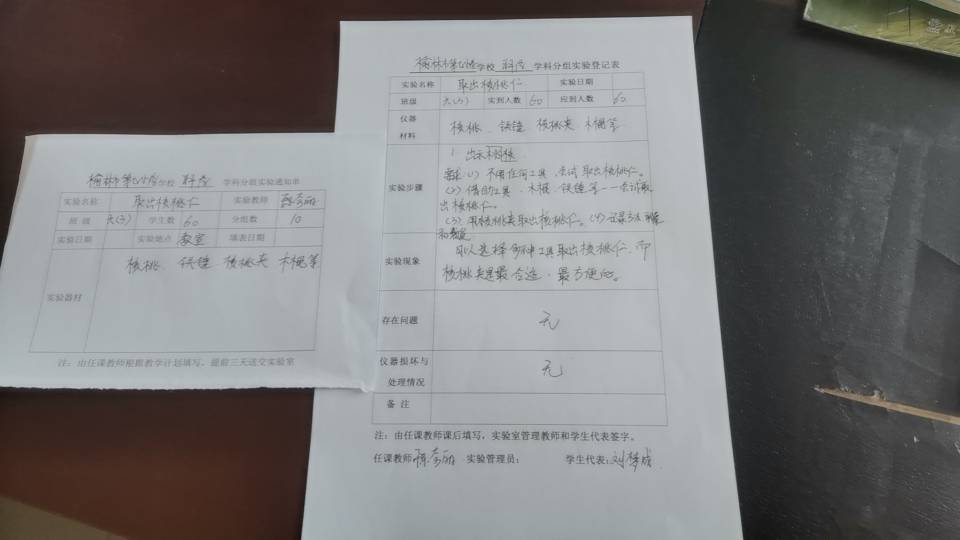 榆林市第 学校 科学 学科分组实验通知单
实验名称 取出核桃仁 实验教师
班 级 六(3) 学生数 60 分组数 10
实验日期 实验地点 教室 填表日期
核桃 铁锤 核桃夹 木棍等
实验器材
注：由任课教师根据教学计划填写，提前三天送交实验室
榆林市第 学校 科学 学科分组实验登记表
实验名称 取出核桃仁 实验日期
班级 六(3) 实到人数 60 应到人数 60
仪器
材料
核桃 铁锤 核桃夹 木棍等
实验步骤
1. 出示核桃
(1) 不用任何工具，尝试取出核桃仁。
(2) 借助工具，木棍、铁锤等一一尝试取
出核桃仁。
(3) 用核桃夹取出核桃仁。(4)
实验现象
可以选择多种工具取出核桃仁，而
核桃夹是最合适、最方便的。
存在问题 无
仪器损坏与
处理情况
无
备 注
注：由任课教师课后填写，实验室管理教师和学生代表签字。
任课教师 实验管理员： 学生代表：刘梦成